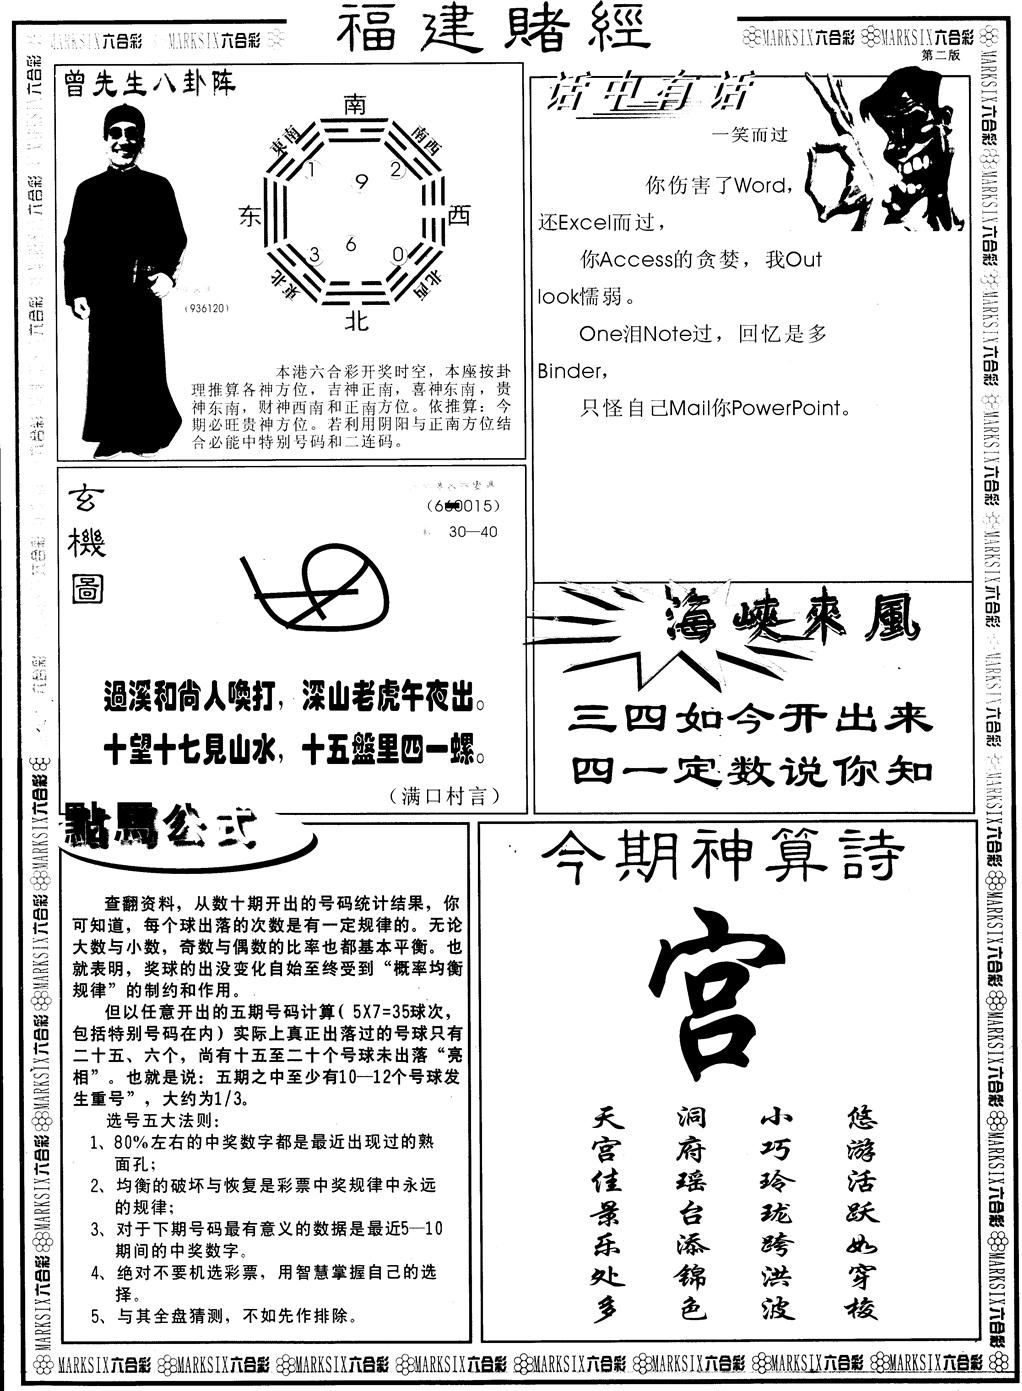 福建賭經
MARKSIX六合彩 MARKSIX六合彩
MARKSIX六合彩 MARKSIX六合彩
第二版
曾先生八卦阵
南
東南
南西
1
9
2
东
西
3
6
0
東北
北西
北
(936120)
本港六合彩开奖时空，本座按卦
理推算各神方位，吉神正南，喜神东南，贵
神东南，财神西南和正南方位。依推算：今
期必旺贵神方位。若利用阴阳与正南方位结
合必能中特别号码和二连码。
话中有话
一笑而过
你伤害了Word，
还Excel而过，
你Access的贪婪，我Out
look懦弱。
One泪Note过，回忆是多
Binder，
只怪自己Mail你PowerPoint。
玄機圖
30—40
過溪和尚人喚打，深山老虎午夜出。
十望十七見山水，十五盤里四一螺。
（满口村言）
海峽來風
三四如今开出来
四一定数说你知
點馬公式
查翻资料，从数十期开出的号码统计结果，你
可知道，每个球出落的次数是有一定规律的。无论
大数与小数，奇数与偶数的比率也都基本平衡。也
就表明，奖球的出没变化自始至终受到“概率均衡
规律”的制约和作用。
但以任意开出的五期号码计算( 5X7=35球次，
包括特别号码在内) 实际上真正出落过的号球只有
二十五、六个，尚有十五至二十个号球未出落“亮
相”。也就是说：五期之中至少有10—12个号球发
生重号”，大约为1/3。
选号五大法则：
1、80%左右的中奖数字都是最近出现过的熟
面孔；
2、均衡的破坏与恢复是彩票中奖规律中永远
的规律；
3、对于下期号码最有意义的数据是最近5—10
期间的中奖数字。
4、绝对不要机选彩票，用智慧掌握自己的选
择。
5、与其全盘猜测，不如先作排除。
今期神算詩
宫
天宫佳景乐处多
洞府瑶台添锦色
小巧玲珑跨洪波
悠游活跃如穿梭
MARKSIX六合彩 MARKSIX六合彩 MARKSIX六合彩 MARKSIX六合彩 MARKSIX六合彩 MARKSIX六合彩 MARKSIX六合彩 MARKSIX六合彩